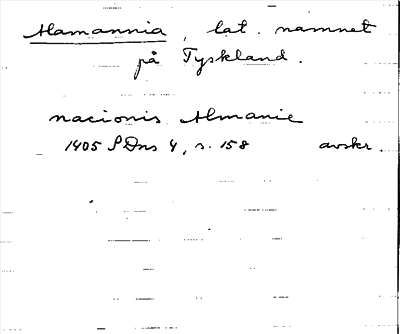 Alamannia, lat. namnet
på Tyskland.
nacionis Almanie
1405 SDns 4, s. 158 avskr.